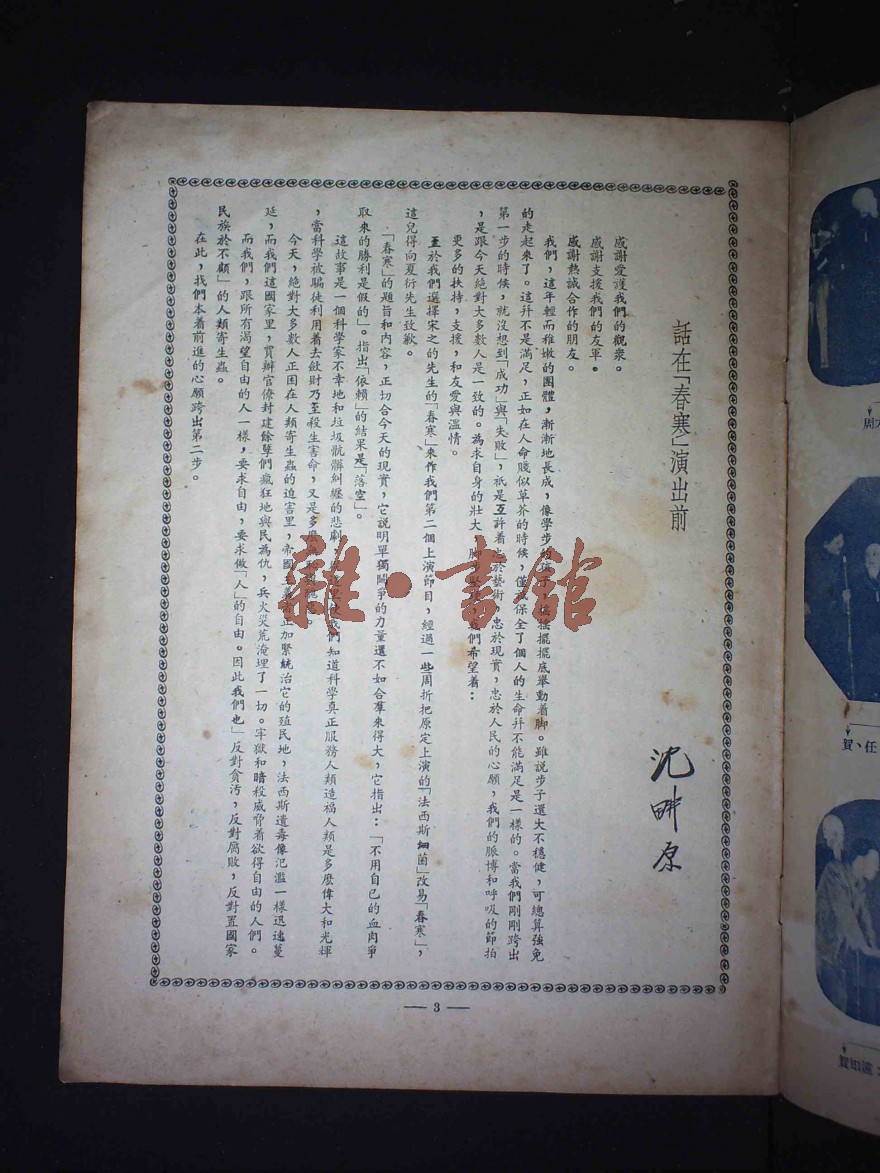 話在「春寒」演出前
沈畔原
感謝愛護我們的觀衆。
感謝支援我們的友軍。
感謝熱誠合作的朋友。
我們,這年輕而稚嫩的團體,漸漸地長成,像學步的孩子,搖搖擺擺底舉動着脚。雖説步子還大不穩健,可總算強免
的走起來了。這幷不是滿足,正如在人命賤似草芥的時候,僅保全了個人的生命幷不能滿足是一樣的。當我們剛剛跨出
第一步的時候,就沒想到「成功」與「失敗」,祇是互許着忠於藝術,忠於現實,忠於人民的心願,我們的脈博和呼吸的節拍
,是跟今天絶對大多數人是一致的。為求自身的壯大,脚我們希望着:
更多的扶持,支援,和友愛與溫情。
至於我們選擇宋之的先生的「春寒」來作我們第二個上演節目,經過一些周折把原定上演的「法西斯細菌」改易「春寒」,
這兒得向夏衍先生致歉。
「春寒」的題旨和內容,正切合今天的現實,它説明單獨鬪爭的力量還不如合羣來得大,它指出:「不用自已的血肉爭
取來的勝利是假的」。指出「依賴」的結果是「落空」。
這故事是一個科學家不幸地和垃圾骯髒糾纏的悲劇,我們知道科學真正服務人類造福人類是多麼偉大和光輝
,當科學被騙徒利用着去斂財乃至殺生害命,又是多麼
今天,絶對大多數人正困在人類寄生蟲的迫害里,帝國主義者正加緊統治它的殖民地,法西斯遺毒像氾濫一樣迅速蔓
廷,而我們這國家里,買辦官僚封建餘孽們瘋狂地與民為仇,兵火災荒淹埋了一切。牢獄和暗殺威脅着欲得自由的人們。
而我們,跟所有渴望自由的人一樣,要求自由,要求做「人」的自由。因此我們也」反對貪汚,反對腐敗,反對置國家
民族於不顧」的人類寄生蟲。
在此,我們本着前進的心願跨出第二步。
— 3 —
雜·書館
周
賀、任
賀如遠: